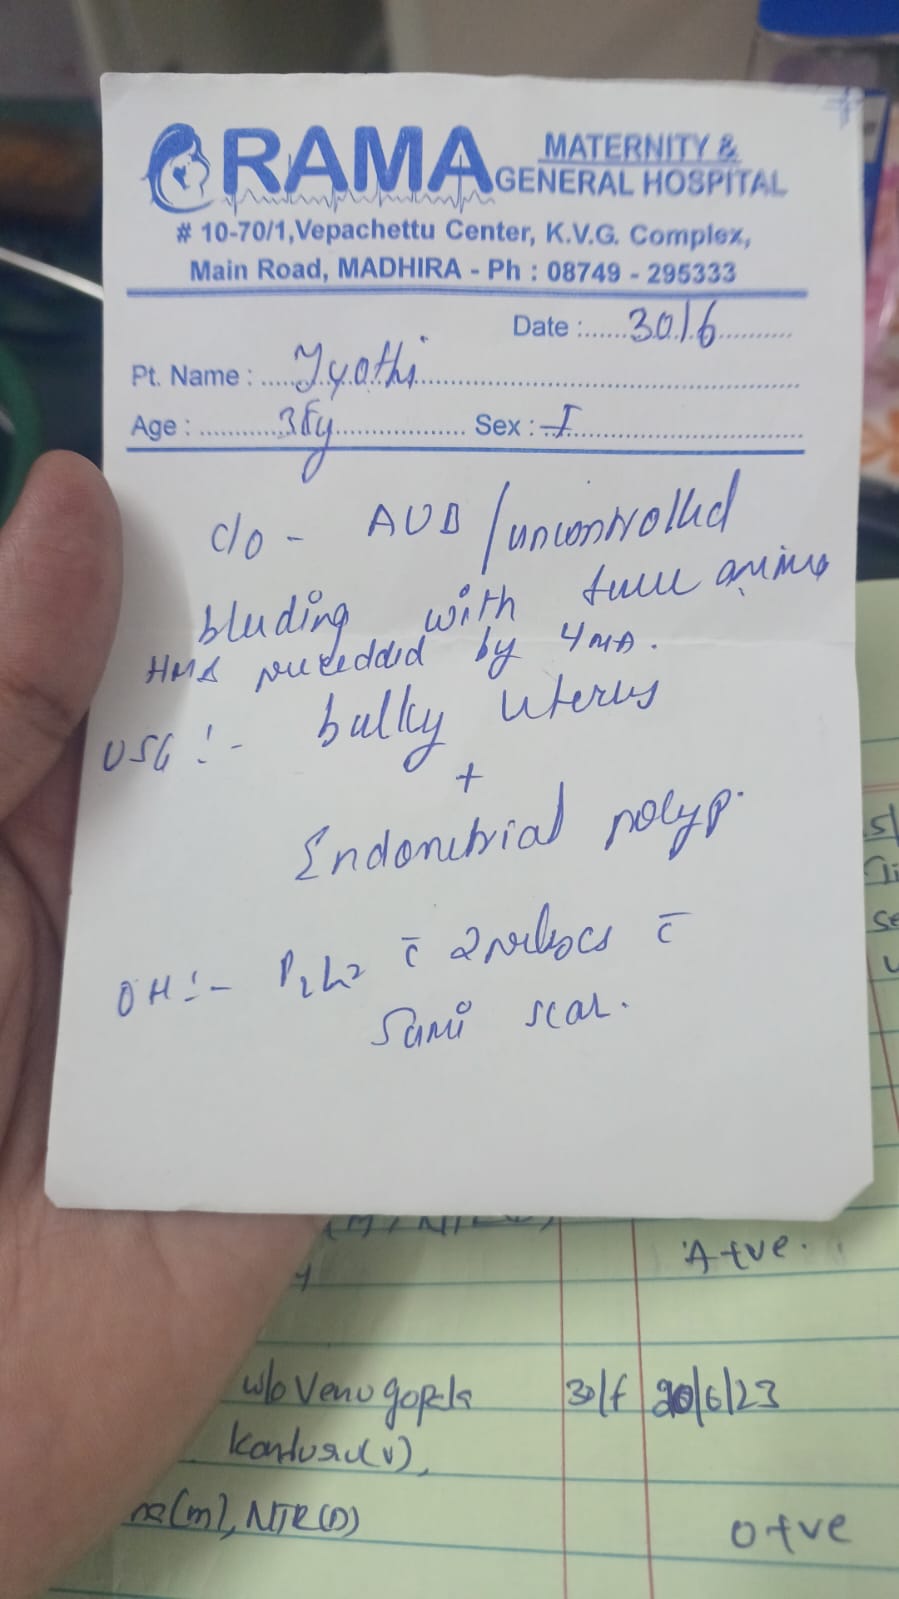 RAMA MATERNITY &
GENERAL HOSPITAL
# 10-70/1, Vepachettu Center, K.V.G. Complex,
Main Road, MADHIRA - Ph : 08749 - 295333
Date :......30/6...........
Pt. Name : .....Jyothi.............................................
Age : ...........35y.................. Sex : F..............................
c/o - AUB / uncontrolled
bleeding with
by 4
USG :- bulky uterus
+
Endometrial polyp.
OH :- P2L2 c̄ 2 c̄
Same scar.
A +ve.
w/o Venu gopala 30/f 20/6/23
(v),
(m), NTR(D)
O +ve